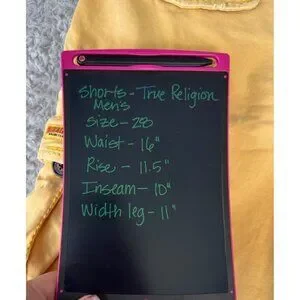 Shorts - True Religion
Men's
Size - 28
Waist - 16"
Rise - 11.5"
Inseam - 10"
Width leg - 11"